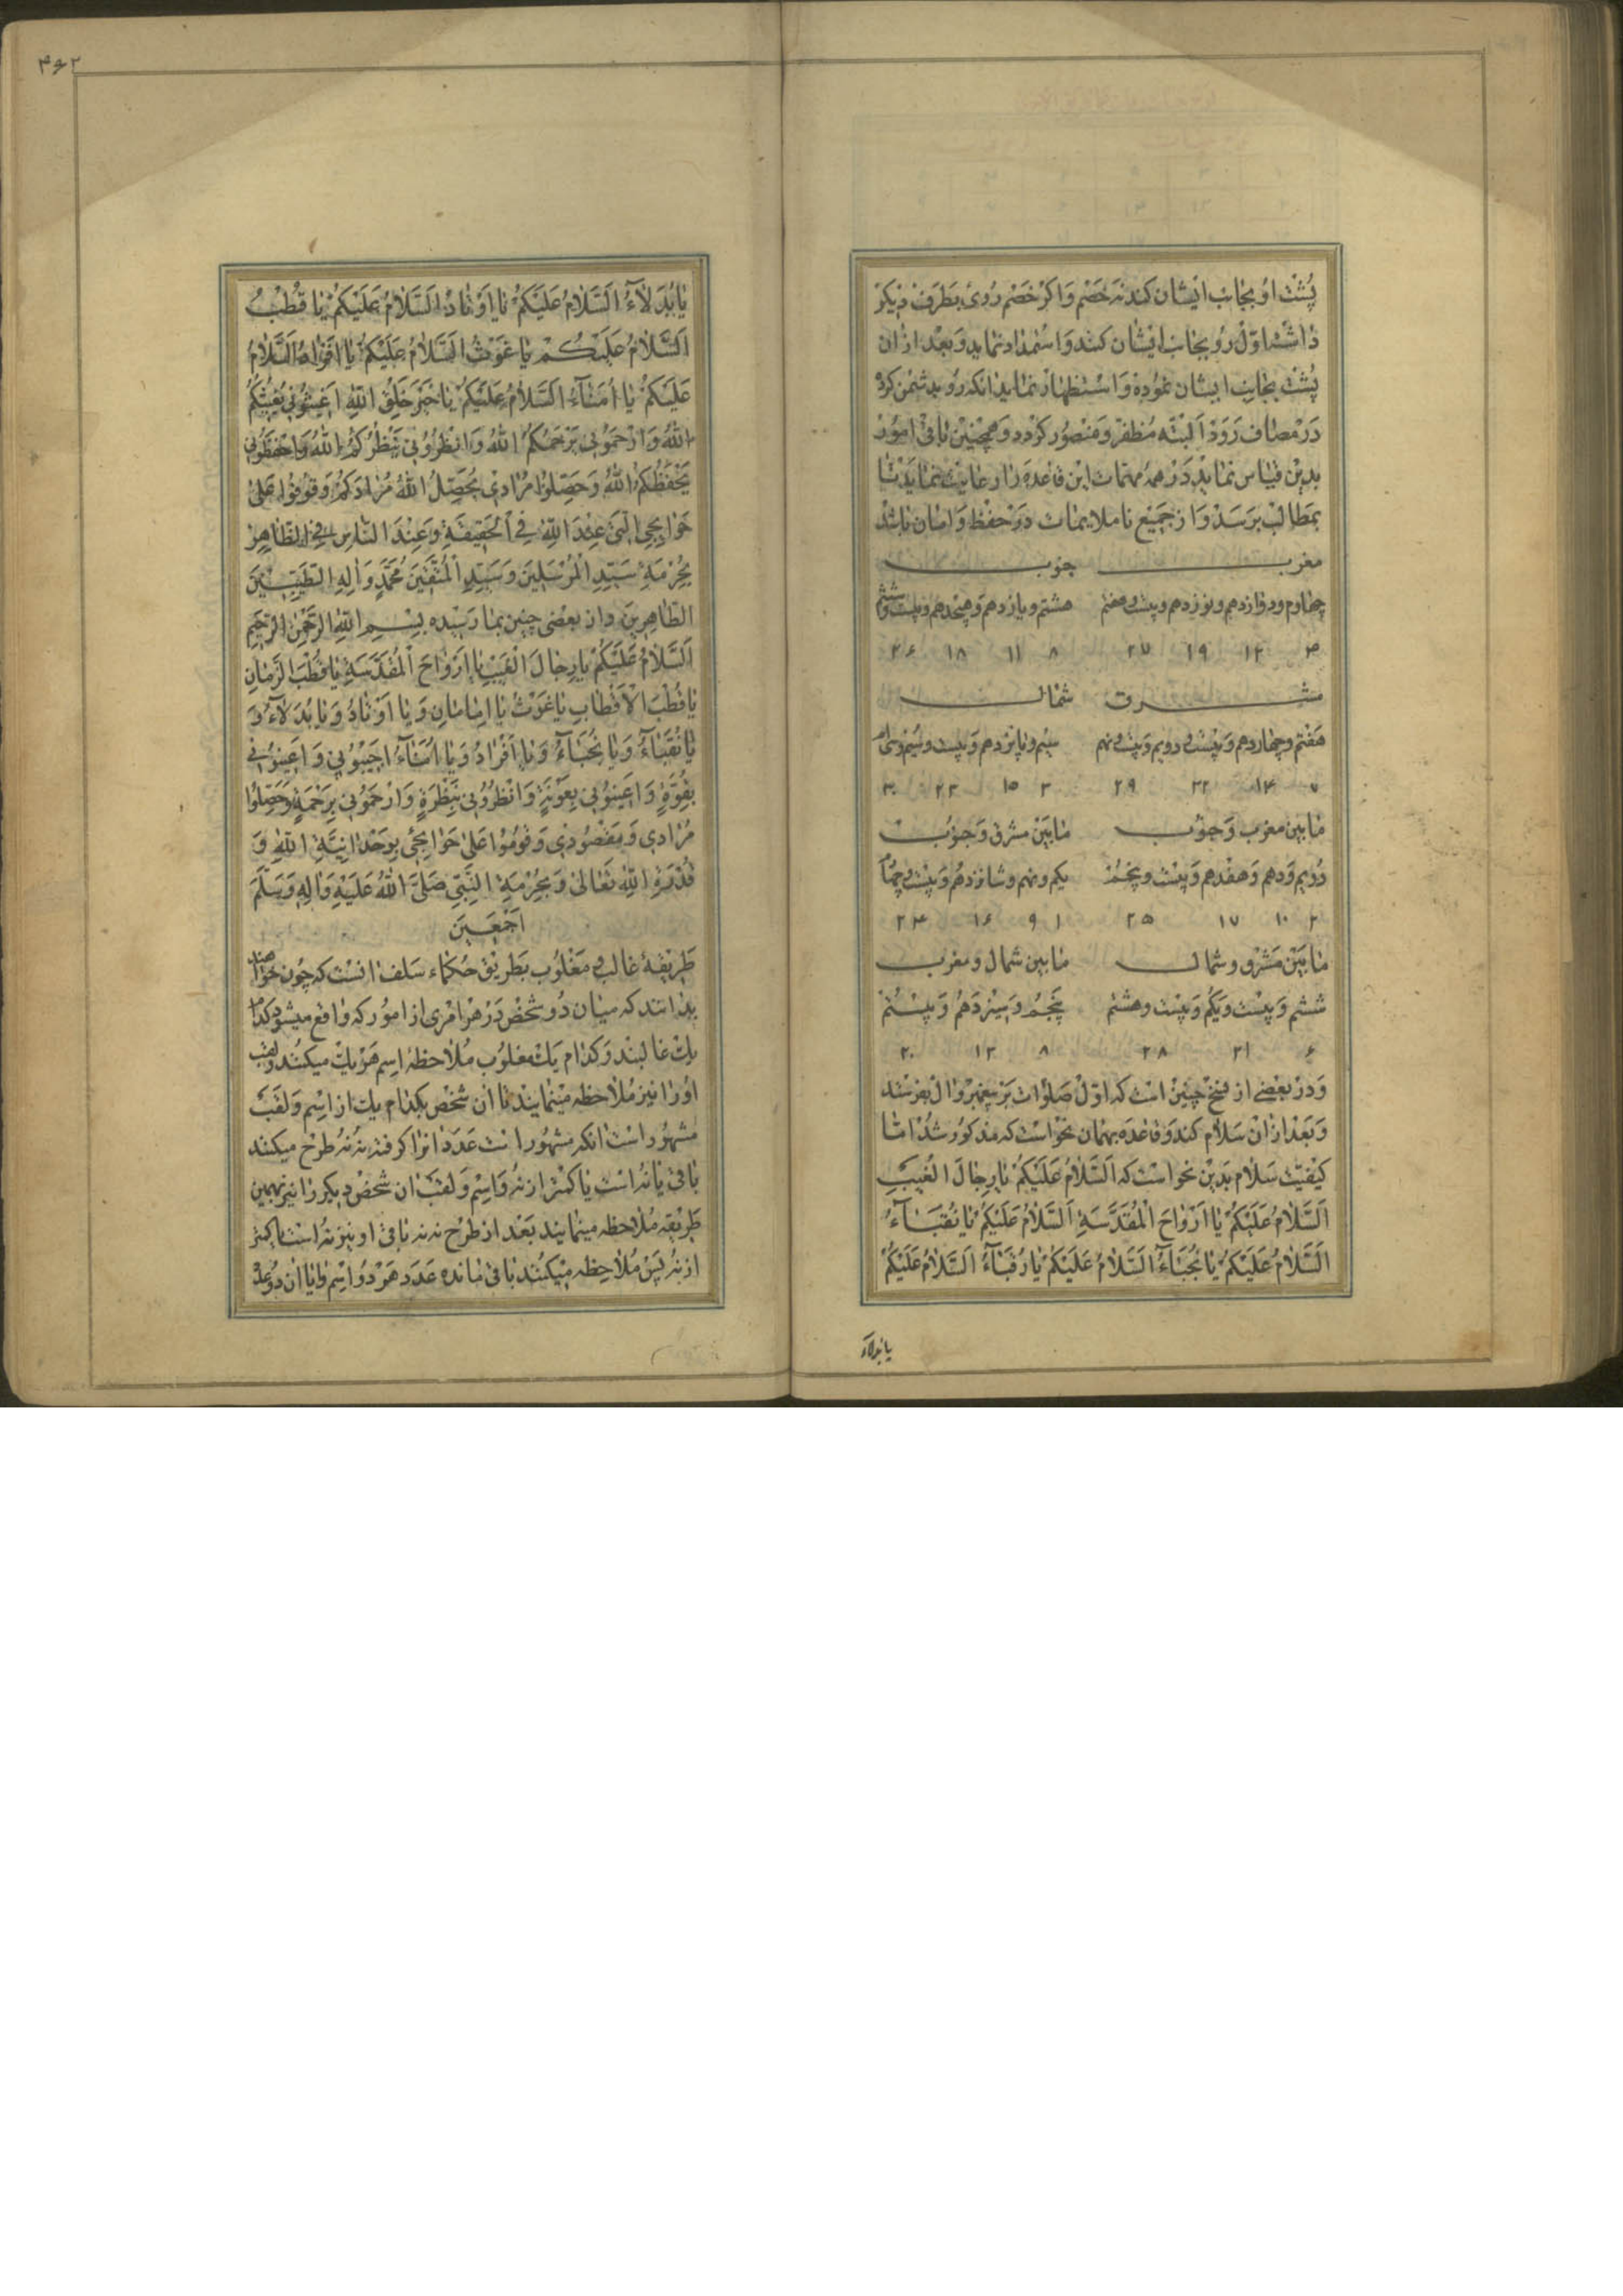 پشت او بجانب ایشان کند نه خصم و اگر خصم روی بطرف دیگر
داشته اول رو بجانب ایشان کنند و استمداد نماید و بعد ازان
پشت بجانب ایشان نموده و استظهار نماید انکه رو بدشمن کرده
در مصاف رود البته مظفر و منصور گردد و همچنین باقی امور
بدین قیاس نماید در همه مهمات این قاعده را رعایت نماید تا
بمطالب برسد و از جمیع ناملایمات در حفظ و امان باشد
مغرب جنوب
چهارم و دوازدهم و نوزدهم و بیست و هفتم هشتم و یازدهم و هیجدهم و بیست و ششم
۴ ۱۲ ۱۹ ۲۷ ۸ ۱۱ ۱۸ ۲۶
مشرق شمال
هفتم و چهاردهم و بیست و دویم و بیست و نهم سیم و پانزدهم و بیست و سیم و سی‌ام
۷ ۱۴ ۲۲ ۲۹ ۳ ۱۵ ۲۳ ۳۰
مابین مغرب و جنوب مابین مشرق و جنوب
دویم و دهم و هفدهم و بیست و پنجم یکم و نهم و شانزدهم و بیست و چهارم
۲ ۱۰ ۱۷ ۲۵ ۱ ۹ ۱۶ ۲۴
مابین مشرق و شمال مابین شمال و مغرب
ششم و بیست و یکم و بیست و هشتم پنجم و سیزدهم و بیستم
۶ ۲۱ ۲۸ ۸ ۱۳ ۲۰
و در بعضی از نسخ چنین است که اول صلوات بر پیغمبر و ال بفرستد
و بعد ازان سلام کند و قاعده بهمان نحو است که مذکور شد اما
کیفیت سلام بدین نحو است که اَلسَّلامُ عَلَیْکُمْ یا رِجالَ الغَیْبِ
اَلسَّلامُ عَلَیْکُمْ یا اَرْواحَ الْمُقَدَّسَةِ اَلسَّلامُ عَلَیْکُمْ یا نُقَبآءُ
اَلسَّلامُ عَلَیْکُمْ یا نُجَبآءُ اَلسَّلامُ عَلَیْکُمْ یا رُقَبآءُ اَلسَّلامُ عَلَیْکُمْ
یا بدلاء
۴۶۲
یا بُدَلآءُ اَلسَّلامُ عَلَیْکُمْ یا اَوْتادُ اَلسَّلامُ عَلَیْکُمْ یا قُطْبُ
اَلسَّلامُ عَلَیْکُمْ یا غَوْثُ اَلسَّلامُ عَلَیْکُمْ یا اَفْرادُ اَلسَّلامُ
عَلَیْکُمْ یا اُمَنآءُ اَلسَّلامُ عَلَیْکُمْ یا خَیْرَ خَلْقِ اللهِ اَغیثُونی یُغِیثُکُمُ
اللهُ وَ ارْحَمُونی یَرْحَمُکُمُ اللهُ وَ انْظُرُونی یَنْظُرُکُمُ اللهُ وَ احْفَظُونی
یَحْفَظُکُمُ اللهُ وَ حَصِّلُوا مُرادی یُحَصِّلُ اللهُ مُرادَکُمْ وَ قُومُوا عَلی
حَوائِجِیَ الَّتی عِنْدَ اللهِ فِی الْحَقیقَةِ وَ عِنْدَ النّاسِ فِی الظّاهِرِ
بِحُرْمَةِ سَیِّدِ الْمُرْسَلینَ وَ سَیِّدِ الْمُتَّقینَ مُحَمَّدٍ وَ الِهِ الطَّیِّبینَ
الطّاهِرینَ و از بعضی چنین بما رسیده بِسْمِ اللهِ الرَّحْمنِ الرَّحیمِ
اَلسَّلامُ عَلَیْکُمْ یا رِجالَ الْغَیْبِ یا اَرْواحَ الْمُقَدَّسَةِ یا قُطْبَ الزَّمانِ
یا قُطْبَ الْاَقْطابِ یا غَوْثُ یا اِمامانِ وَ یا اَوْتادُ وَ یا بُدَلآءُ وَ
یا نُقَبآءُ وَ یا نُجَبآءُ وَ یا اَفْرادُ وَ یا اُمَنآءُ اَجیبُونی وَ اَعینُونی
بِقُوَّةٍ وَ اَعینُونی بِعَوْنَةٍ وَ انْظُرُونی بِنَظْرَةٍ وَ ارْحَمُونی بِرَحْمَةٍ وَ حَصِّلُوا
مُرادی وَ مَقْصُودی وَ قُومُوا عَلی حَوائِجی بِوَحْدانِیَّةِ اللهِ وَ
قُدْرَةِ اللهِ تَعالی وَ بِحُرْمَةِ النَّبِیِّ صَلَّی اللهُ عَلَیْهِ وَ الِهِ وَ سَلَّمَ
اَجْمَعینَ
طریقهٔ غالب و مغلوب بطریق حکماء سلف انست که چون خواهند
بدانند که میان دو شخص در هر امری از امور که واقع میشود کدام
یک غالبند و کدام یک مغلوب ملاحظهٔ اسم هر یک میکنند و لقب
او را نیز ملاحظه مینمایند تا ان شخص بکدام یک از اسم و لقب
مشهور است انکه مشهور است عدد انرا گرفته نه نه طرح میکنند
باقی یا نه است یا کمتر از نه و اسم و لقب ان شخص دیگر را نیز بهمین
طریقه ملاحظه مینمایند بعد از طرح نه نه باقی او نیز نه است یا کمتر
از نه پس ملاحظه میکنند باقی مانده عدد هر دو اسم را یا ان دو عدد